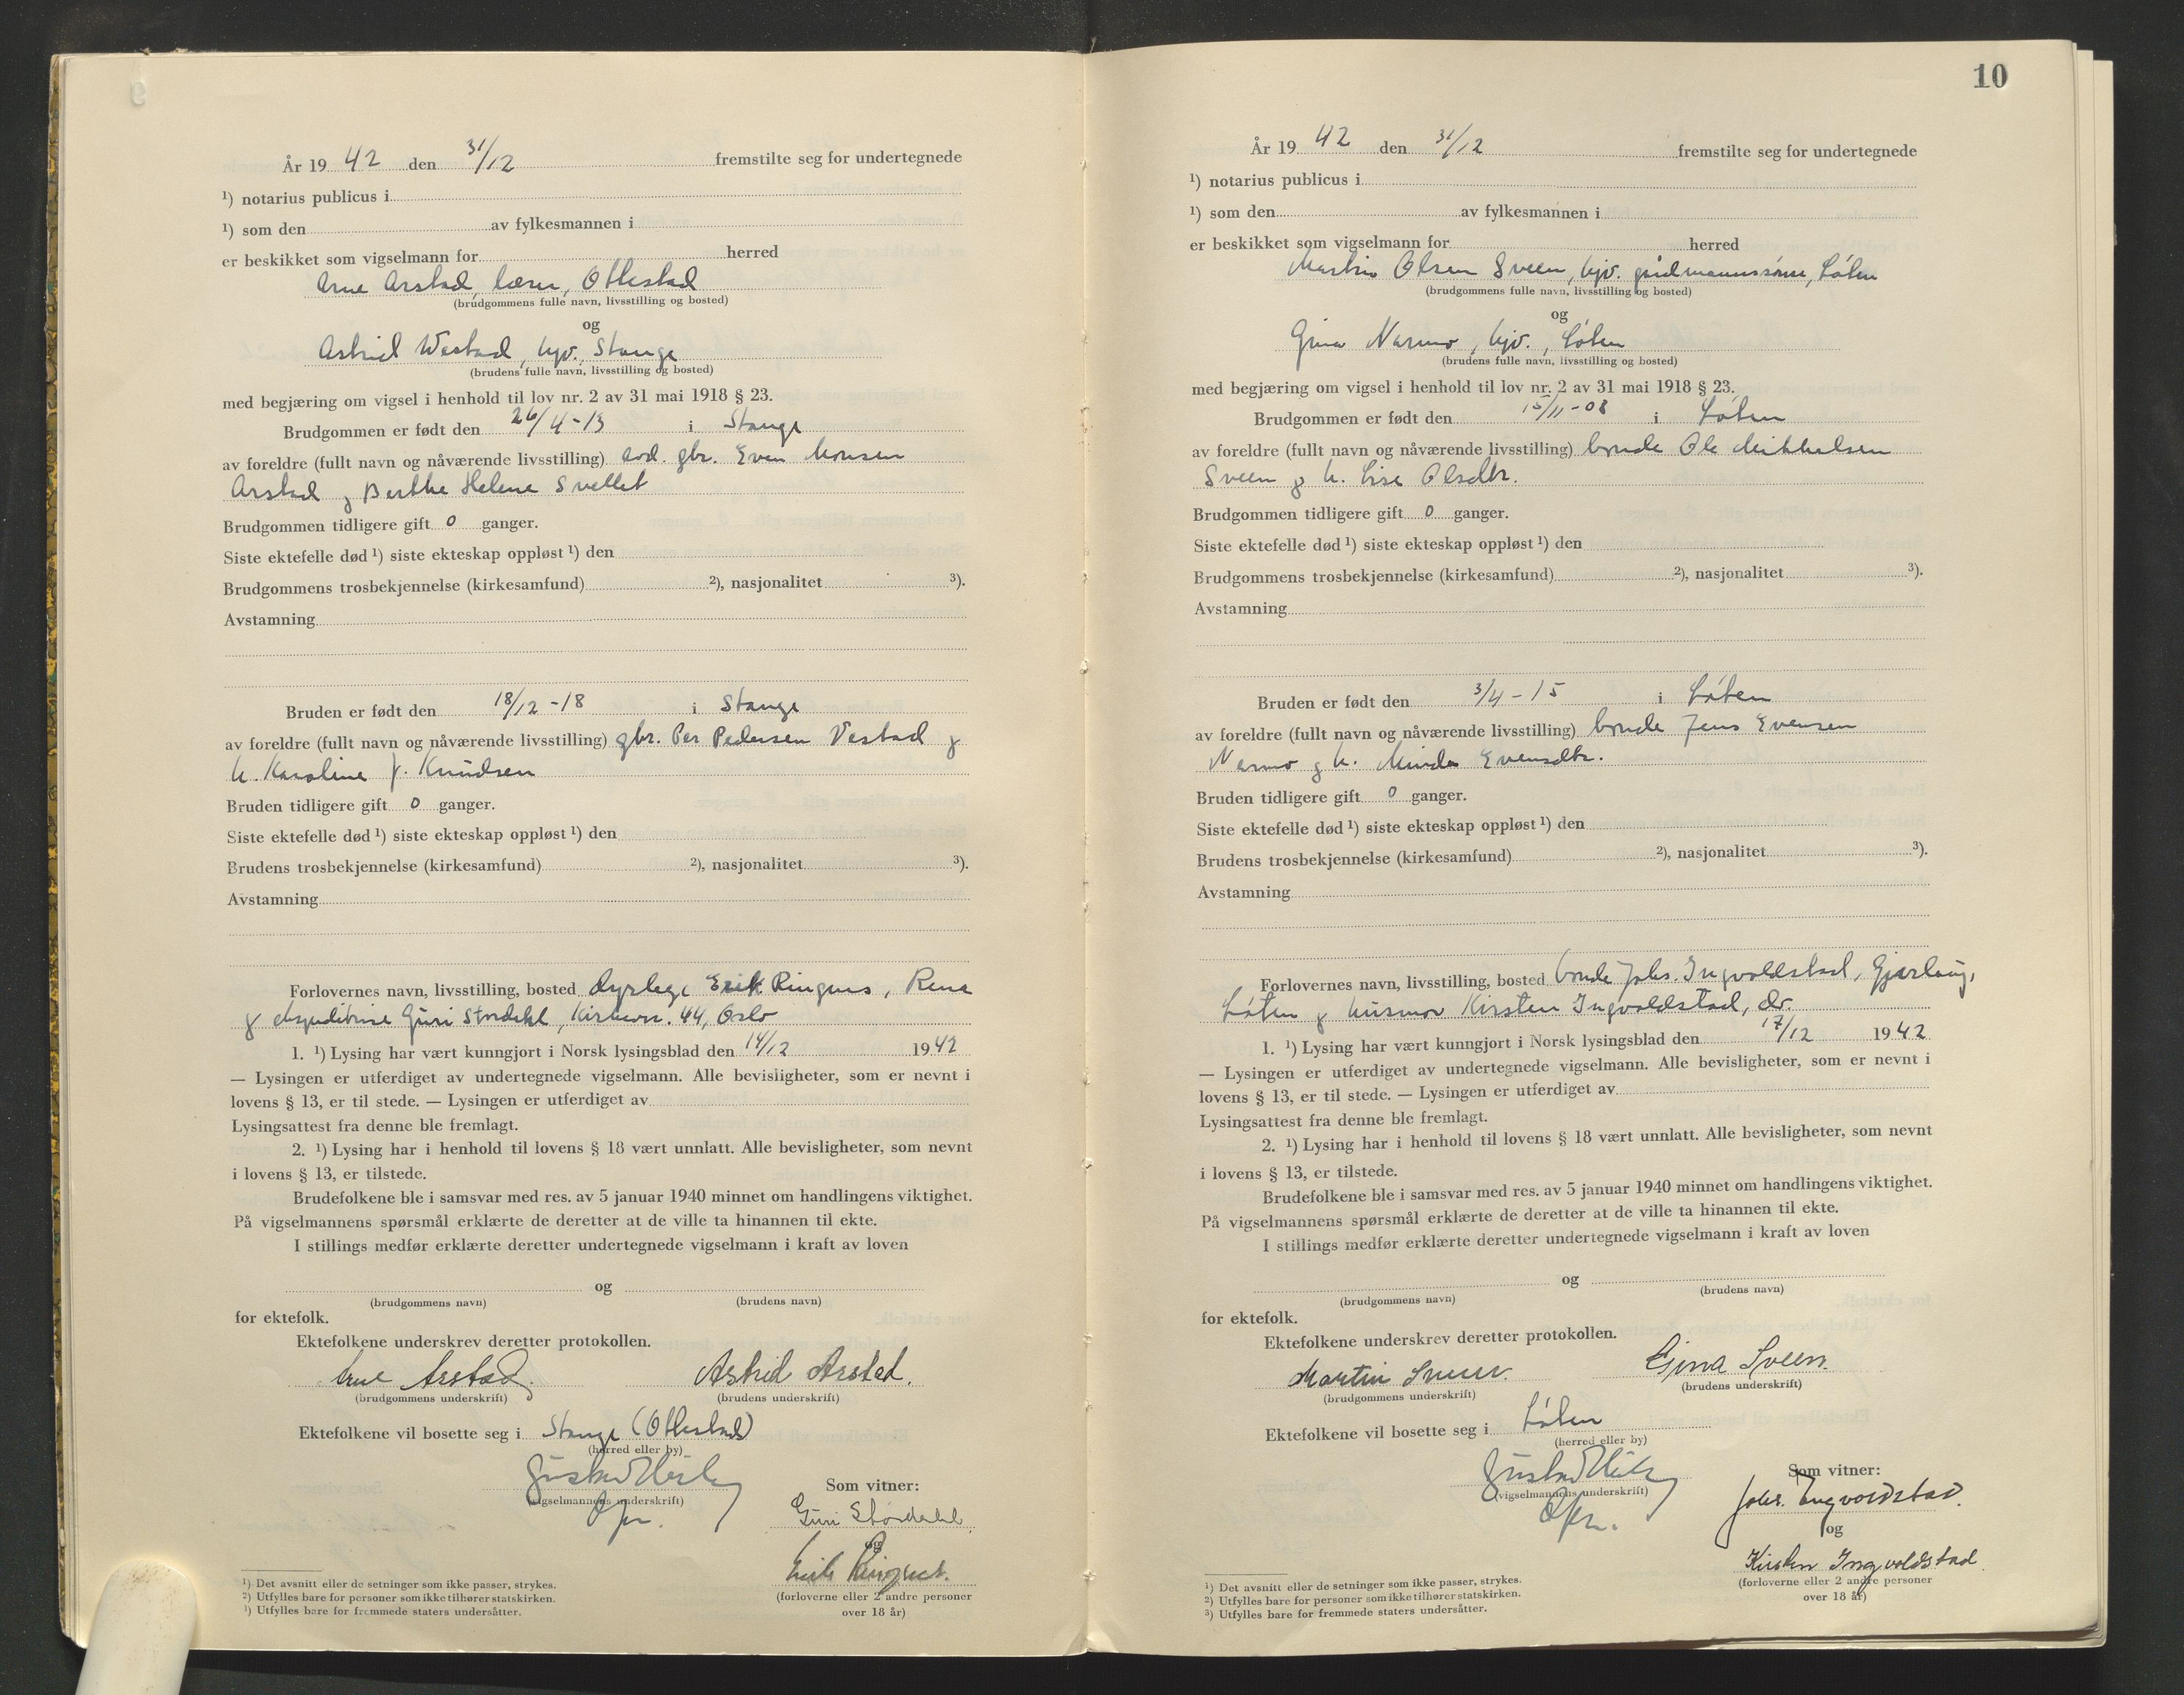 År 19 42 den 31/12 fremstilte seg for undertegnede
¹) notarius publicus i
¹) som den av fylkesmannen i
er beskikket som vigselmann for herred
Arne Arstad, lærer, Ottestad
(brudgommens fulle navn, livsstilling og bosted)
og
Astrid Westad, hjv., Stange
(brudens fulle navn, livsstilling og bosted)
med begjæring om vigsel i henhold til lov nr. 2 av 31 mai 1918 § 23.
Brudgommen er født den 26/4-13 i Stange
av foreldre (fullt navn og nåværende livsstilling) avd. gbr. Even Monsen
Arstad og Berthe Helene Svellet
Brudgommen tidligere gift 0 ganger.
Siste ektefelle død ¹) siste ekteskap oppløst ¹) den
Brudgommens trosbekjennelse (kirkesamfund) ²), nasjonalitet ³).
Avstamning
Bruden er født den 18/12-18 i Stange
av foreldre (fullt navn og nåværende livsstilling) gbr. Per Pedersen Vestad og
h. Karoline f. Knudsen
Bruden tidligere gift 0 ganger.
Siste ektefelle død ¹) siste ekteskap oppløst ¹) den
Brudens trosbekjennelse (kirkesamfund) ²), nasjonalitet ³).
Avstamning
Forlovernes navn, livsstilling, bosted dyrlege Erik Ringnes, Rena
og ekspeditrise Guri Stordahl, Kirkevn. 44, Oslo
1. ¹) Lysing har vært kunngjort i Norsk lysingsblad den 14/12 1942
— Lysingen er utferdiget av undertegnede vigselmann. Alle bevisligheter, som er nevnt i
lovens § 13, er til stede. — Lysingen er utferdiget av
Lysingsattest fra denne ble fremlagt.
2. ¹) Lysing har i henhold til lovens § 18 vært unnlatt. Alle bevisligheter, som nevnt
i lovens § 13, er tilstede.
Brudefolkene ble i samsvar med res. av 5 januar 1940 minnet om handlingens viktighet.
På vigselmannens spørsmål erklærte de deretter at de ville ta hinannen til ekte.
I stillings medfør erklærte deretter undertegnede vigselmann i kraft av loven
og
(brudgommens navn) (brudens navn)
for ektefolk.
Ektefolkene underskrev deretter protokollen.
Arne Arstad. Astrid Arstad.
(brudgommens underskrift) (brudens underskrift)
Ektefolkene vil bosette seg i Stange (Ottestad)
(herred eller by)
(vigselmannens underskrift)
Som vitner:
Guri Stordahl
og
Erik Ringnes.
(forloverne eller 2 andre personer
over 18 år)
¹) Det avsnitt eller de setninger som ikke passer, strykes.
²) Utfylles bare for personer som ikke tilhører statskirken.
³) Utfylles bare for fremmede staters undersåtter.
10
År 19 42 den 31/12 fremstilte seg for undertegnede
¹) notarius publicus i
¹) som den av fylkesmannen i
er beskikket som vigselmann for herred
Martin Olsen Sveen, hjv. gårdmannssønn, Løten
(brudgommens fulle navn, livsstilling og bosted)
og
Gina Narmo, hjv., Løten
(brudens fulle navn, livsstilling og bosted)
med begjæring om vigsel i henhold til lov nr. 2 av 31 mai 1918 § 23.
Brudgommen er født den 15/11-08 i Løten
av foreldre (fullt navn og nåværende livsstilling) bonde Ole Mikkelsen
Sveen og h. Lise Olsdtr.
Brudgommen tidligere gift 0 ganger.
Siste ektefelle død ¹) siste ekteskap oppløst ¹) den
Brudgommens trosbekjennelse (kirkesamfund) ²), nasjonalitet ³).
Avstamning
Bruden er født den 3/4-15 i Løten
av foreldre (fullt navn og nåværende livsstilling) bonde Jens Evensen
Narmo og h. Minda Evensdtr.
Bruden tidligere gift 0 ganger.
Siste ektefelle død ¹) siste ekteskap oppløst ¹) den
Brudens trosbekjennelse (kirkesamfund) ²), nasjonalitet ³).
Avstamning
Forlovernes navn, livsstilling, bosted bonde Johs. Ingvoldstad, Gjerlaug,
Løten og husmor Kirsten Ingvoldstad, do.
1. ¹) Lysing har vært kunngjort i Norsk lysingsblad den 17/12 1942
— Lysingen er utferdiget av undertegnede vigselmann. Alle bevisligheter, som er nevnt i
lovens § 13, er til stede. — Lysingen er utferdiget av
Lysingsattest fra denne ble fremlagt.
2. ¹) Lysing har i henhold til lovens § 18 vært unnlatt. Alle bevisligheter, som nevnt
i lovens § 13, er tilstede.
Brudefolkene ble i samsvar med res. av 5 januar 1940 minnet om handlingens viktighet.
På vigselmannens spørsmål erklærte de deretter at de ville ta hinannen til ekte.
I stillings medfør erklærte deretter undertegnede vigselmann i kraft av loven
og
(brudgommens navn) (brudens navn)
for ektefolk.
Ektefolkene underskrev deretter protokollen.
Martin Sveen. Gina Sveen.
(brudgommens underskrift) (brudens underskrift)
Ektefolkene vil bosette seg i Løten
(herred eller by)
(vigselmannens underskrift)
Som vitner:
Johs. Ingvoldstad.
og
Kirsten Ingvoldstad
(forloverne eller 2 andre personer
over 18 år)
¹) Det avsnitt eller de setninger som ikke passer, strykes.
²) Utfylles bare for personer som ikke tilhører statskirken.
³) Utfylles bare for fremmede staters undersåtter.